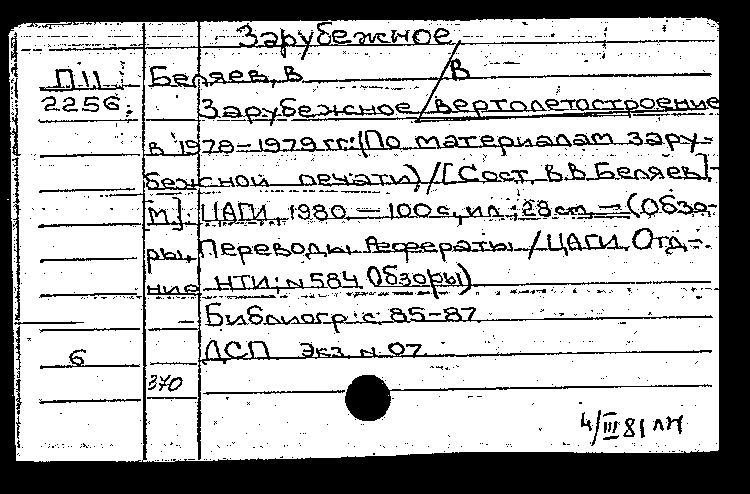 Зарубежное
П.11 Беляев, В /В
2256; Зарубежное /вертолетостроение
в 1978-1979 гг:(По материалам зару-
бежной печати) / [Сост. В.В.Беляев].-
М]: ЦАГИ, 1980 — 100 с, ил ; 28 cm, — (Обзо-
ры, Переводы. Рефераты / ЦАГИ. Отд-
ние НТИ; n 584 Обзоры)
- Библиогр: с. 85-87
6 ДСП Экз. n 07
370
4/III 81 ЛН